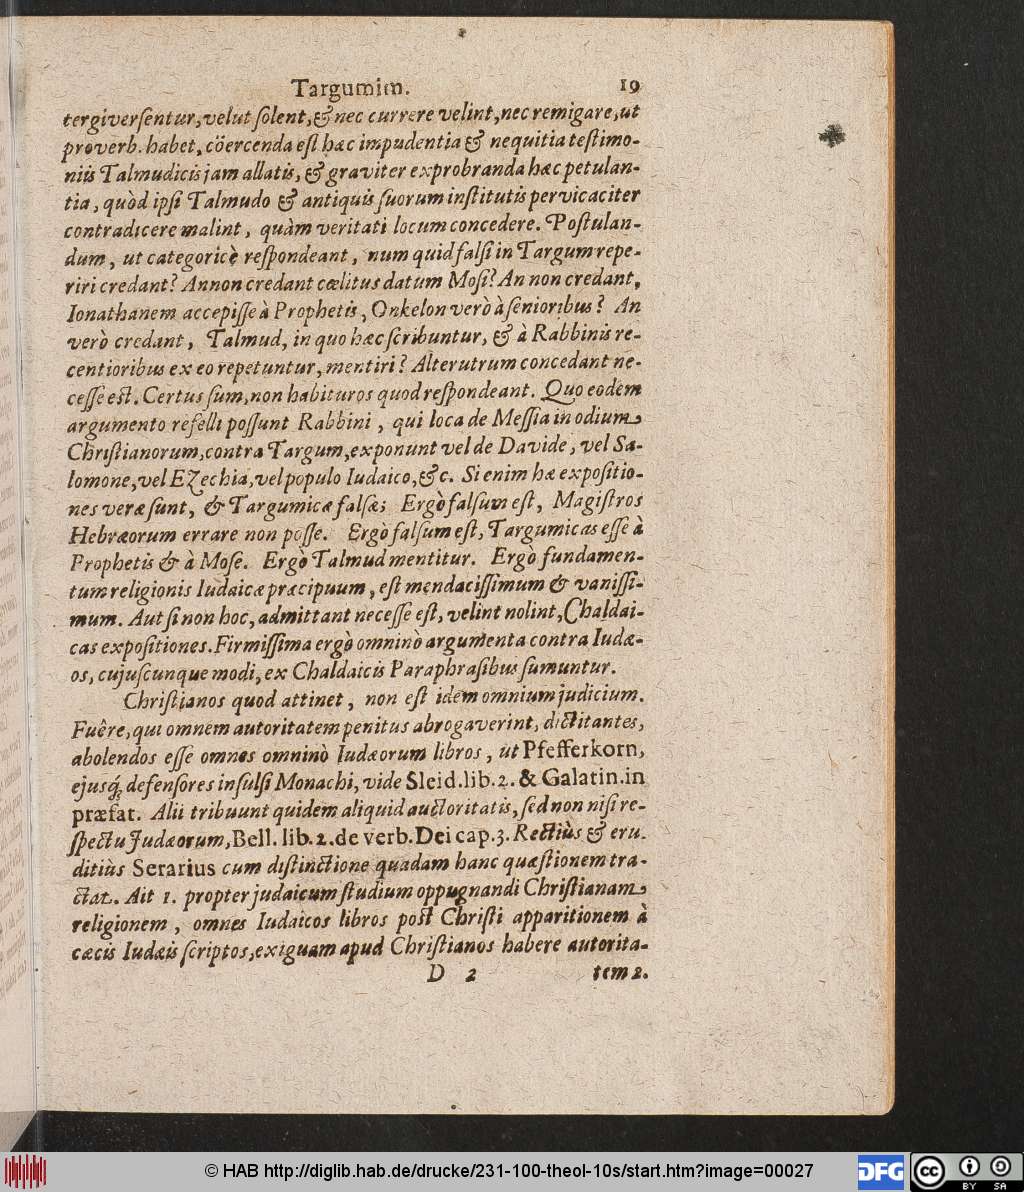 Targumim. 19
tergiversentur, velut solent, & nec currere velint, nec remigare, ut
proverb. habet, cöercenda est hæc impudentia & nequitia testimo-
niis Talmudicis jam allatis, & graviter exprobranda hæc petulan-
tia, quòd ipsi Talmudo & antiquis suorum institutis pervicaciter
contradicere malint, quàm veritati locum concedere. Postulan-
dum, ut categoricè respondeant, num quid falsi in Targum repe-
riri credant? Annon credant cœlitus datum Mosi? An non credant,
Ionathanem accepisse à Prophetis, Onkelon verò à senioribus? An
verò credant, Talmud, in quo hæc scribuntur, & à Rabbinis re-
centioribus ex eo repetuntur, mentiri? Alterutrum concedant ne-
cesse est. Certus sum, non habituros quod respondeant. Quo eodem
argumento refelli possunt Rabbini, qui loca de Messia in odium
Christianorum, contra Targum, exponunt vel de Davide, vel Sa-
lomone, vel Ezechia, vel populo Iudaico, &c. Si enim hæ expositio-
nes veræ sunt, & Targumicæ falsæ; Ergò falsum est, Magistros
Hebræorum errare non posse. Ergò falsum est, Targumicas esse à
Prophetis & à Mose. Ergò Talmud mentitur. Ergò fundamen-
tum religionis Iudaicæ præcipuum, est mendacissimum & vanissi-
mum. Aut si non hoc, admittant necesse est, velint nolint, Chaldai-
cas expositiones. Firmissima ergò omninò argumenta contra Iudæ-
os, cujuscunque modi, ex Chaldaicis Paraphrasibus sumuntur.
Christianos quod attinet, non est idem omnium judicium.
Fuêre, qui omnem autoritatem penitus abrogaverint, dictitantes,
abolendos esse omnes omninò Iudæorum libros, ut Pfefferkorn,
ejusq́; defensores insulsi Monachi, vide Sleid. lib. 2. & Galatin. in
præfat. Alii tribuunt quidem aliquid auctoritatis, sed non nisi re-
spectu Judæorum, Bell. lib. 2. de verb. Dei cap. 3. Rectiùs & eru-
ditiùs Serarius cum distinctione quadam hanc quæstionem tra-
ctat. Ait 1. propter judaicum studium oppugnandi Christianam
religionem, omnes Iudaicos libros post Christi apparitionem à
cæcis Iudæis scriptos, exiguam apud Christianos habere autorita-
D 2 tem 2.
© HAB http://diglib.hab.de/drucke/231-100-theol-10s/start.htm?image=00027
DFG
cc BY SA